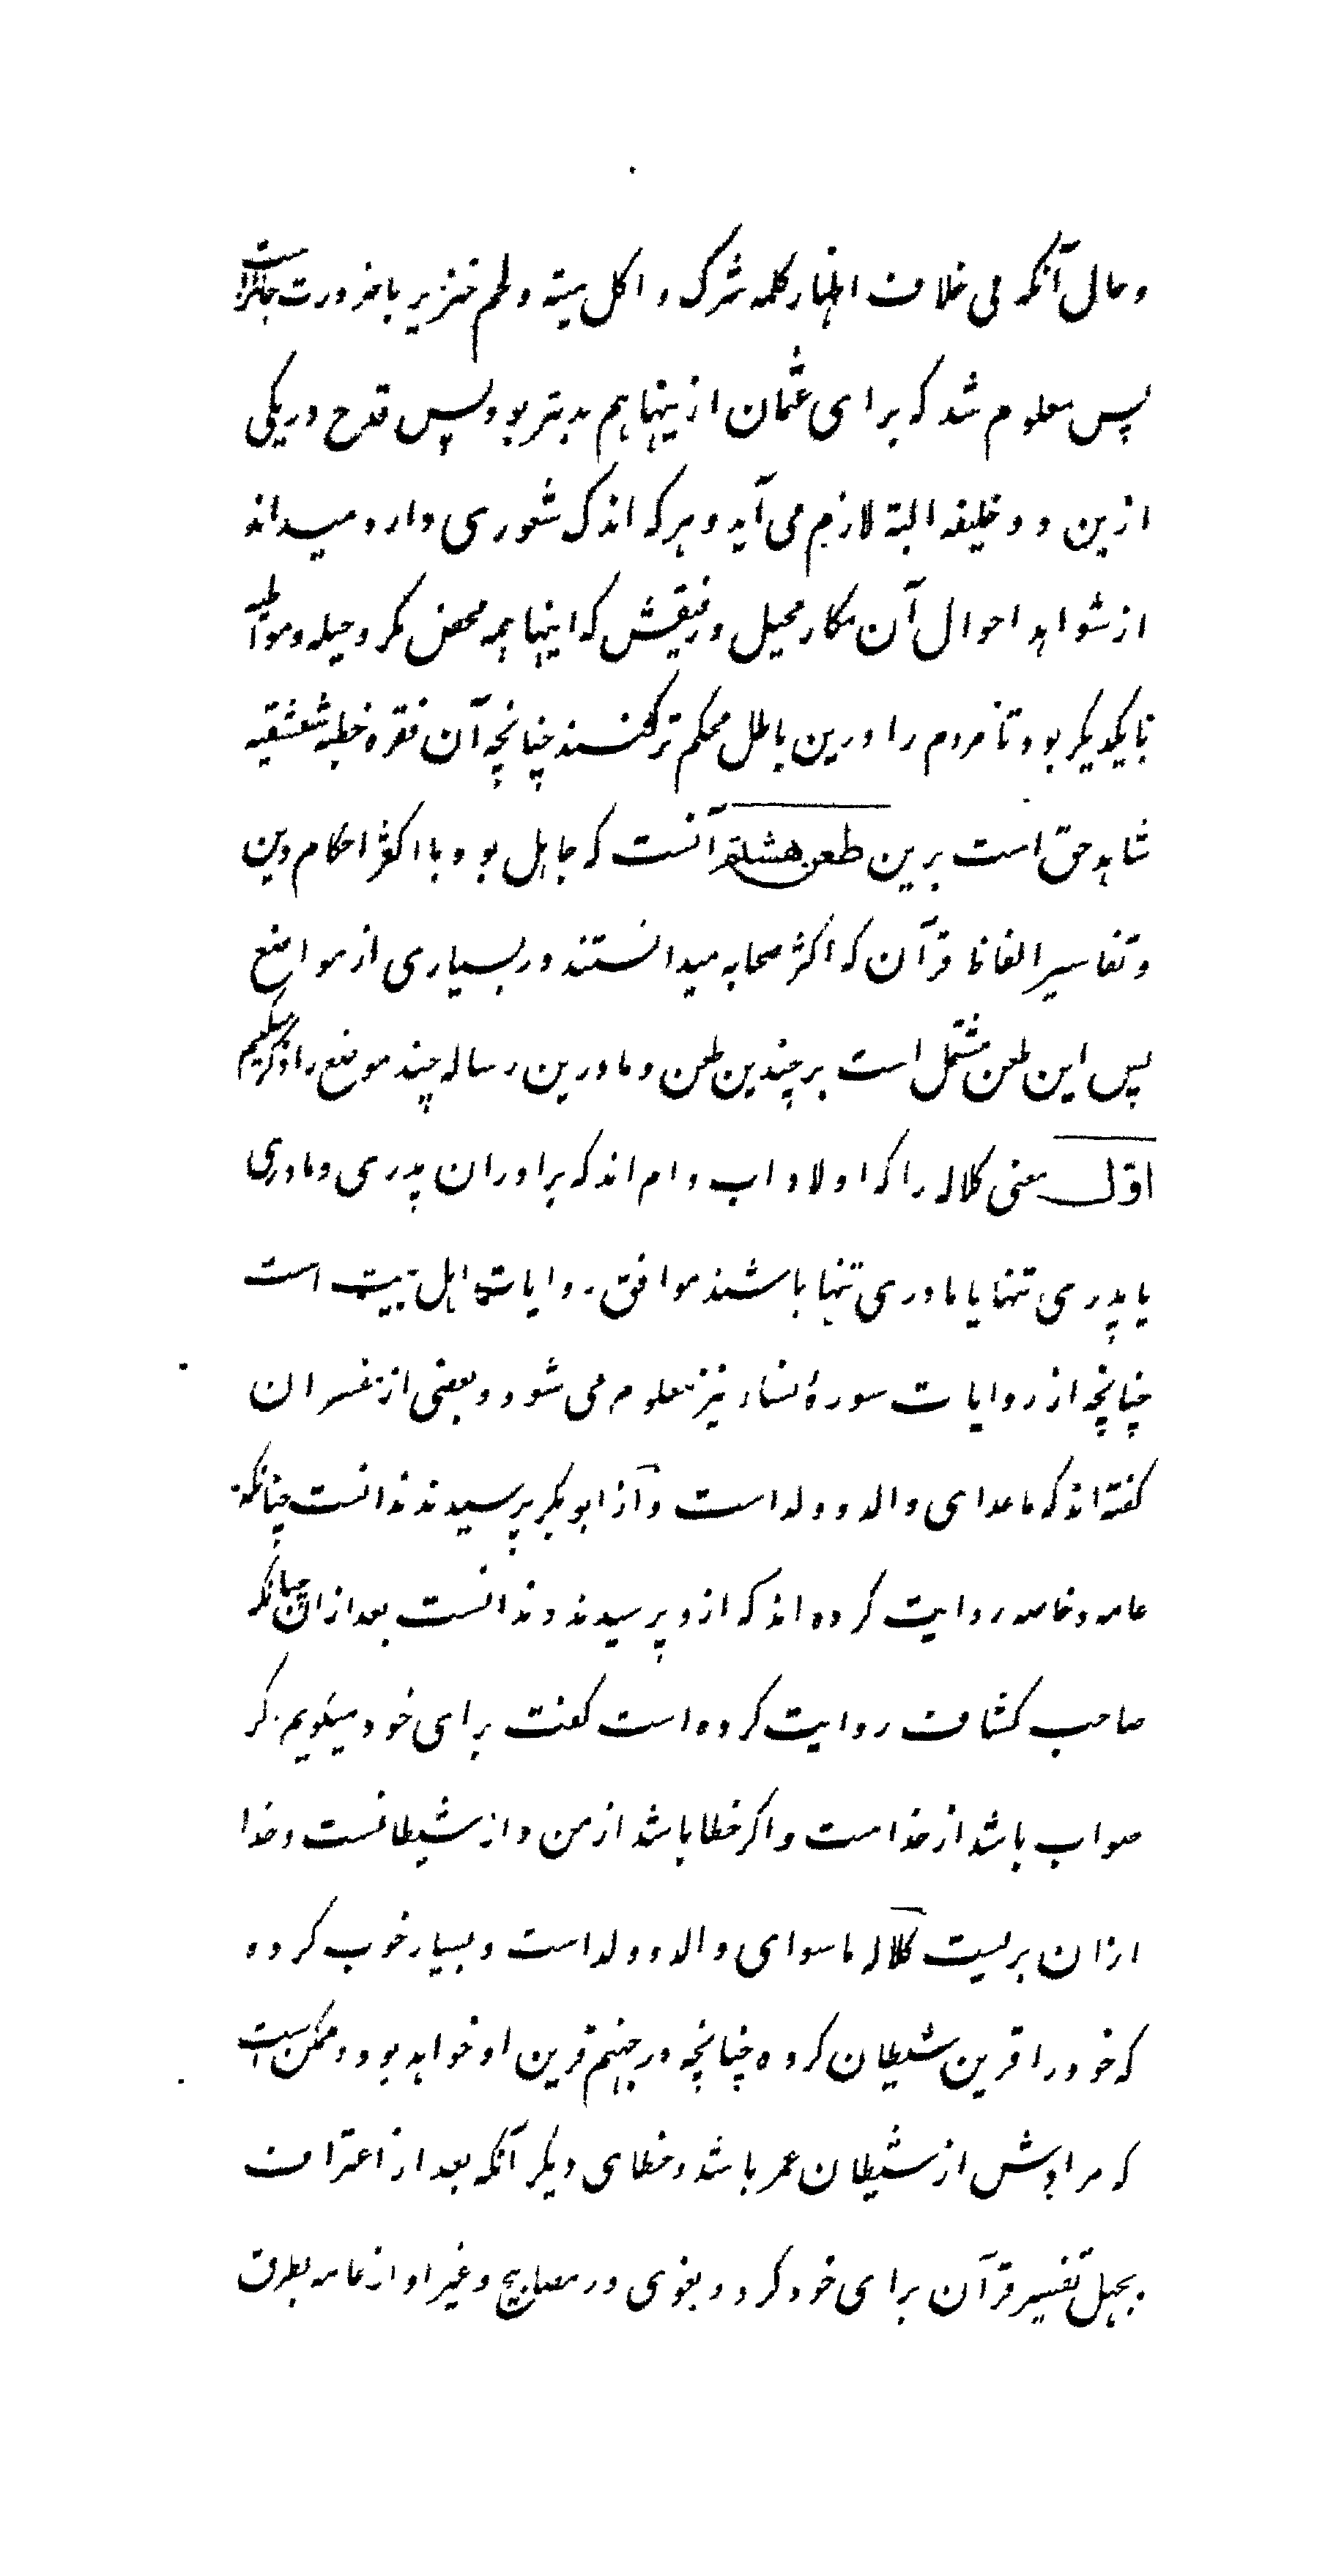 و حال آنکه بی خلاف اظهار کلمه شرک و اکل میته و لحم خنزیر با ضرورت جائز است
پس معلوم شد که برای عثمان ازینها هم بدتر بود پس قدح در یکی
ازین دو خلیفه البته لازم می آید و هر که اندک شعوری دارد میداند
از شواهد احوال آن مکار محیل و رفیقش که اینها همه محض مکر و حیله و مواطاه
با یکدیگر بود تا مردم را درین باطل محکم تر کنند چنانچه آن فقره خطبه شقشقیه
شاهد حق است برین طعن هشتم آنست که جاهل بود با اکثر احکام دین
و تفاسیر الفاظ قرآن که اکثر صحابه میدانستند در بسیاری از مواضع
پس این طعن مشتمل است بر چندین طعن و ما درین رساله چند موضع را ذکر میکنیم
اول معنی کلاله را که اولاد اب و ام اند که برادران پدری و مادری
یا پدری تنها یا مادری تنها باشند موافق روایات اهل بیت است
چنانچه از روایات سورهٔ نساء نیز معلوم می شود و بعضی از مفسران
کفته اند که ماعدای والد و ولد است و از ابوبکر پرسیدند ندانست چنانکه
عامه و خاصه روایت کرده اند که ازو پرسیدند و ندانست بعد ازان چنانکه
صاحب کشاف روایت کرده است کفت برای خود میکویم کر
صواب باشد از خداست و اکر خطا باشد از من و از شیطانست و خدا
ازان بریست کلاله ماسوای والد و ولد است و بسیار خوب کرده
که خود را قرین شیطان کرده چنانچه در جهنم قرین او خواهد بود و ممکن است
که مرادش از شیطان عمر باشد و خطای دیکر آنکه بعد از اعتراف
بجهل تفسیر قرآن برای خود کرد و بغوی در مصابیح و غیر او از عامه بطرق